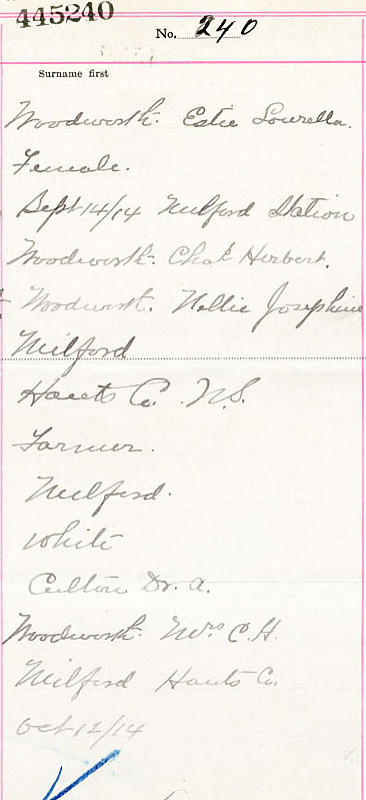 445240
No. 240
Surname first
Woodworth. Estie Lourella.
Female.
Sept 14/14 Milford Station
Woodworth. Chas Herbert.
Woodworth. Nellie Josephine
Milford
Hants Co. N.S.
Farmer.
Milford.
White
Culton Dr. A.
Woodworth. Mrs C.H.
Milford Hants Co.
Oct 12/14